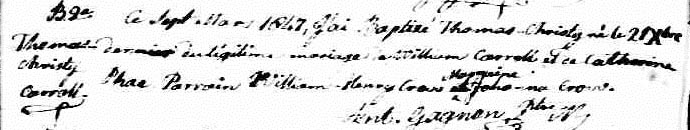 B 2e Ce Sept Mars 1847, J'ai Baptisé Thomas-Christy né le 21 Xbre
Thomas dernier du légitime mariage de William Carroll et de Catherine
Christy Phae Parrain William-Henry Crow Marraine Johanna Crow.
Carroll. Ant. Gagnon Ptre